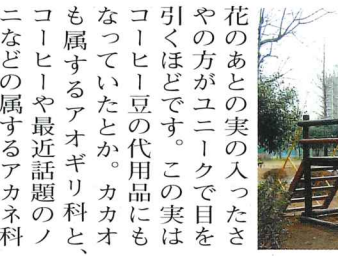 花のあとの実の入ったさ
やの方がユニークで目を
引くほどです。この実は
コーヒー豆の代用品にも
なっていたとか。カカオ
も属するアオギリ科と、
コーヒーや最近話題のノ
ニなどの属するアカネ科